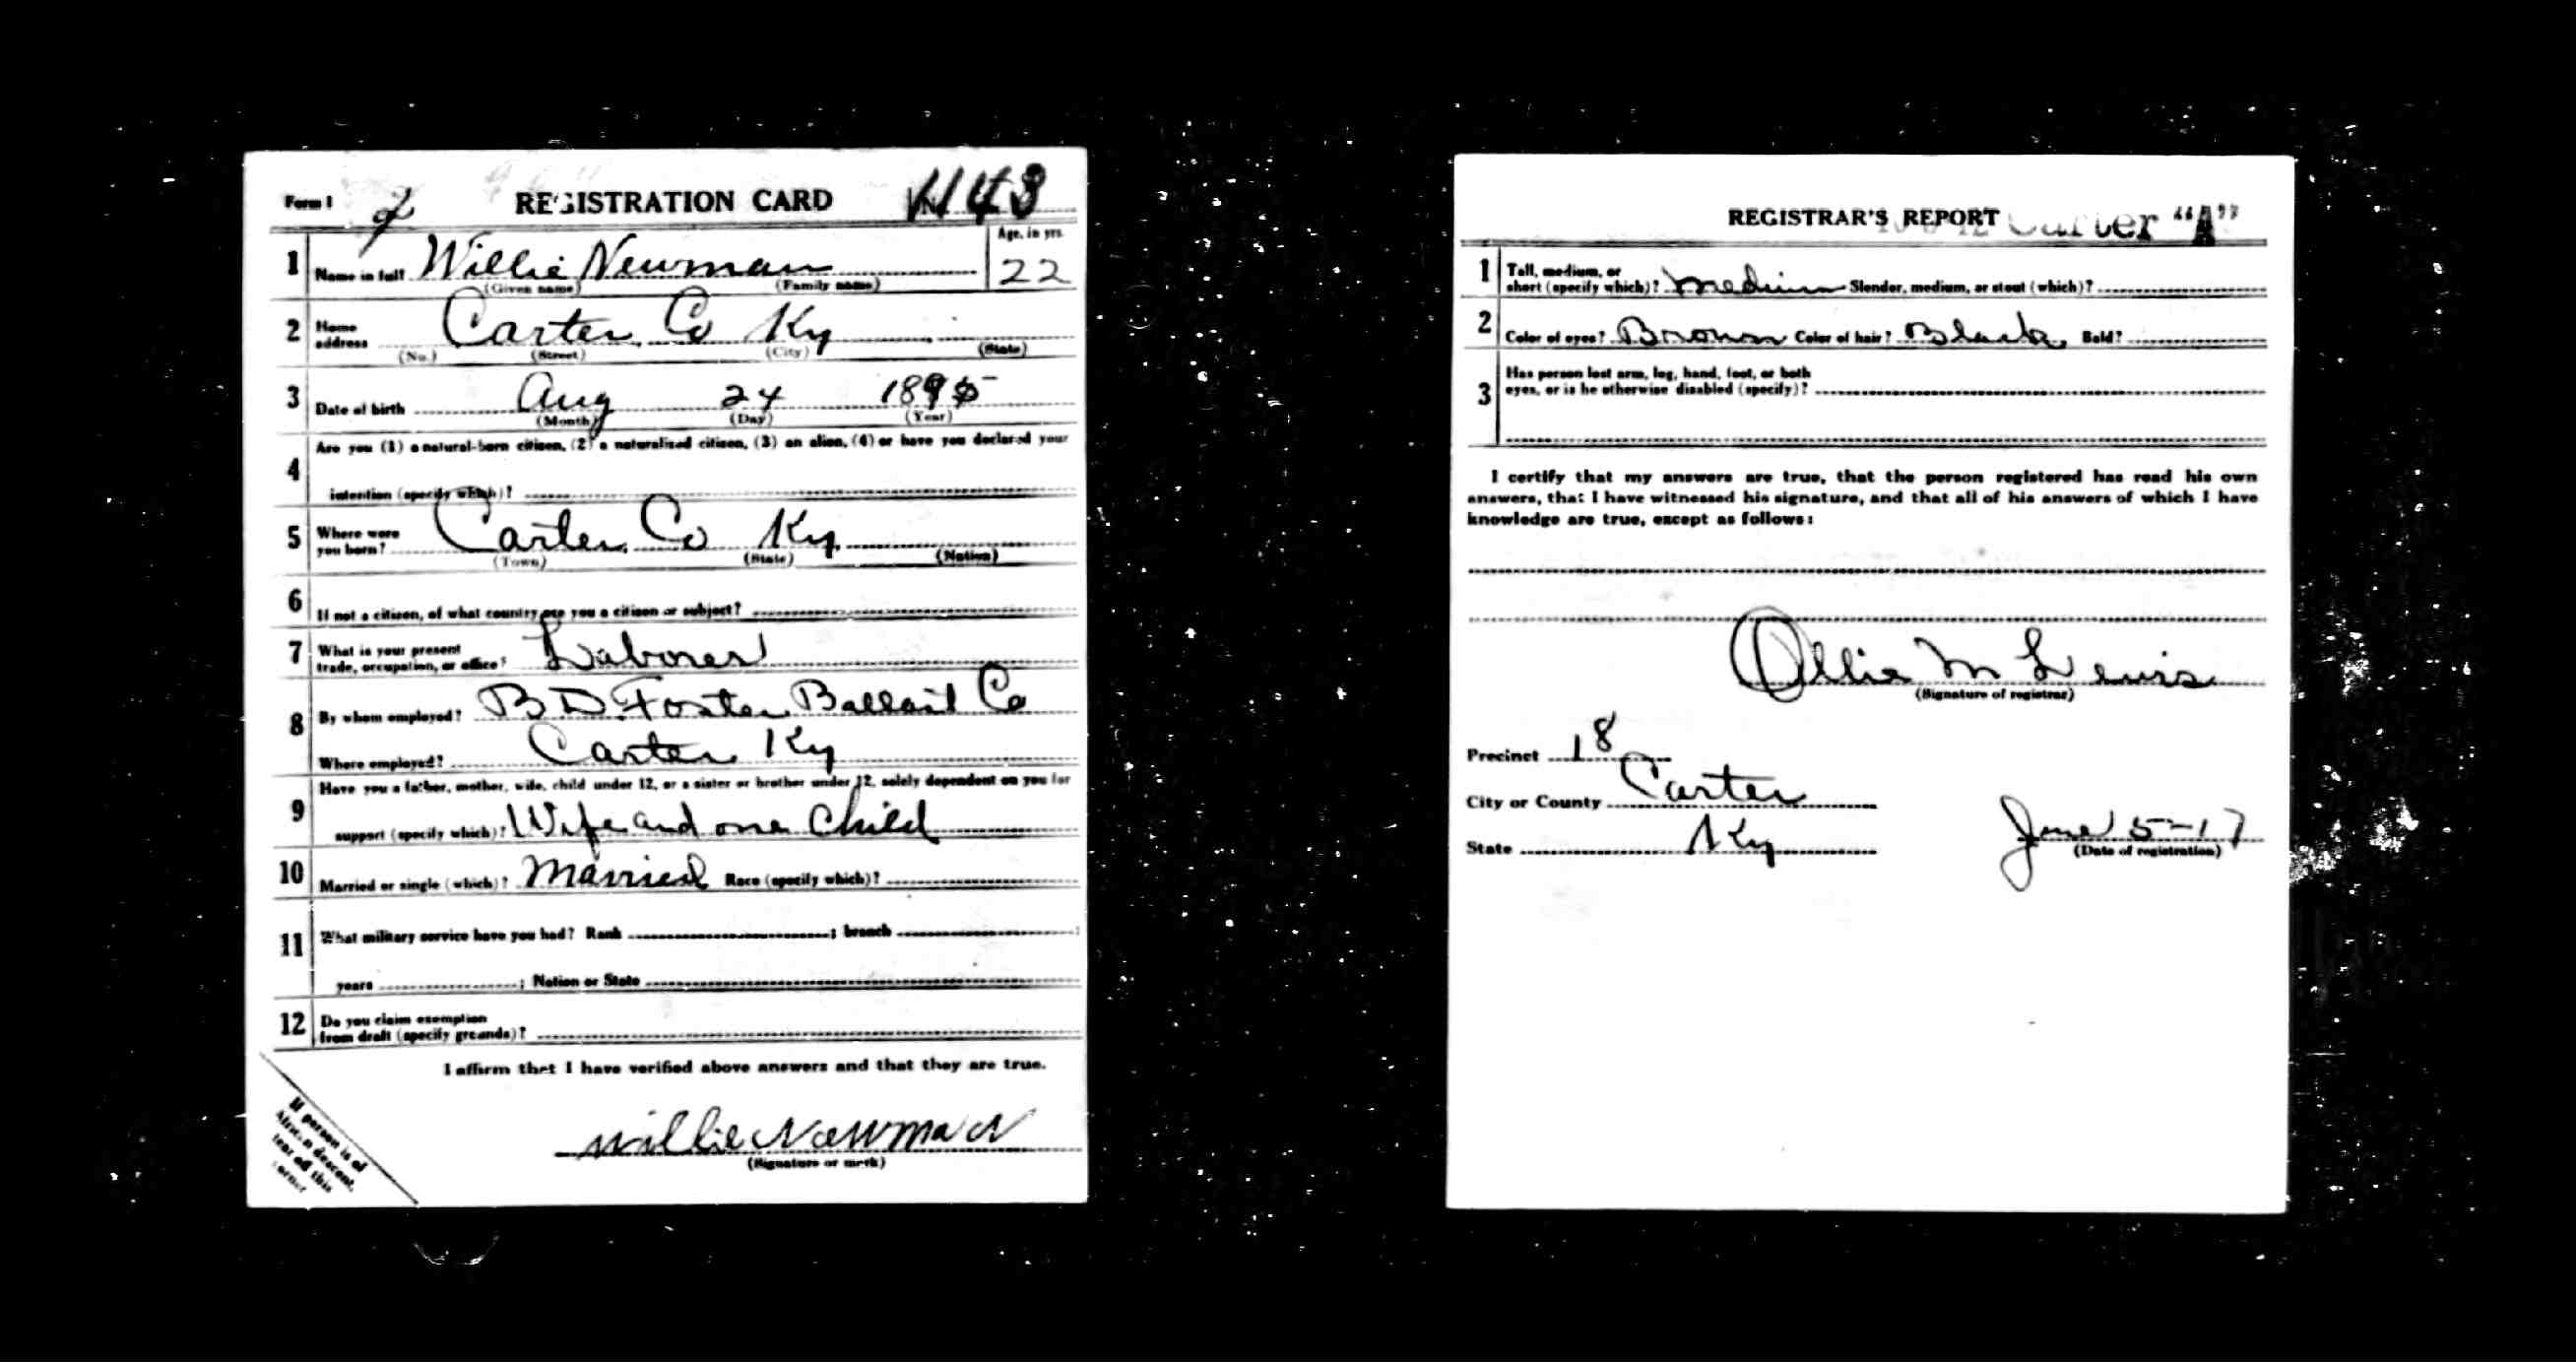 Form 1 REGISTRATION CARD No. 1143
1 Name in full Willie Newman Age, in yrs. 22
(Given name) (Family name)
2 Home address Carter Co Ky
(No.) (Street) (City) (State)
3 Date of birth Aug 24 1895
(Month) (Day) (Year)
4 Are you (1) a natural-born citizen, (2) a naturalized citizen, (3) an alien, (4) or have you declared your
intention (specify which)?
5 Where were you born? Carter Co Ky
(Town) (State) (Nation)
6 If not a citizen, of what country are you a citizen or subject?
7 What is your present trade, occupation, or office? Laborer
8 By whom employed? B D. Foster Ballast Co
Where employed? Carter Ky
9 Have you a father, mother, wife, child under 12, or a sister or brother under 12, solely dependent on you for
support (specify which)? Wife and one Child
10 Married or single (which)? Married Race (specify which)?
11 What military service have you had? Rank ; branch ;
years ; Nation or State
12 Do you claim exemption
from draft (specify grounds)?
I affirm that I have verified above answers and that they are true.
Willie Newman
(Signature or mark)
If person is of
African descent,
tear off this
corner
REGISTRAR'S REPORT Carter "A"
1 Tall, medium, or
short (specify which)? Medium Slender, medium, or stout (which)?
2 Color of eyes? Brown Color of hair? Black Bald?
3 Has person lost arm, leg, hand, foot, or both
eyes, or is he otherwise disabled (specify)?
I certify that my answers are true, that the person registered has read his own
answers, that I have witnessed his signature, and that all of his answers of which I have
knowledge are true, except as follows:
Ollie M Lewis
(Signature of registrar)
Precinct 18
City or County Carter
State Ky
June 5-17
(Date of registration)